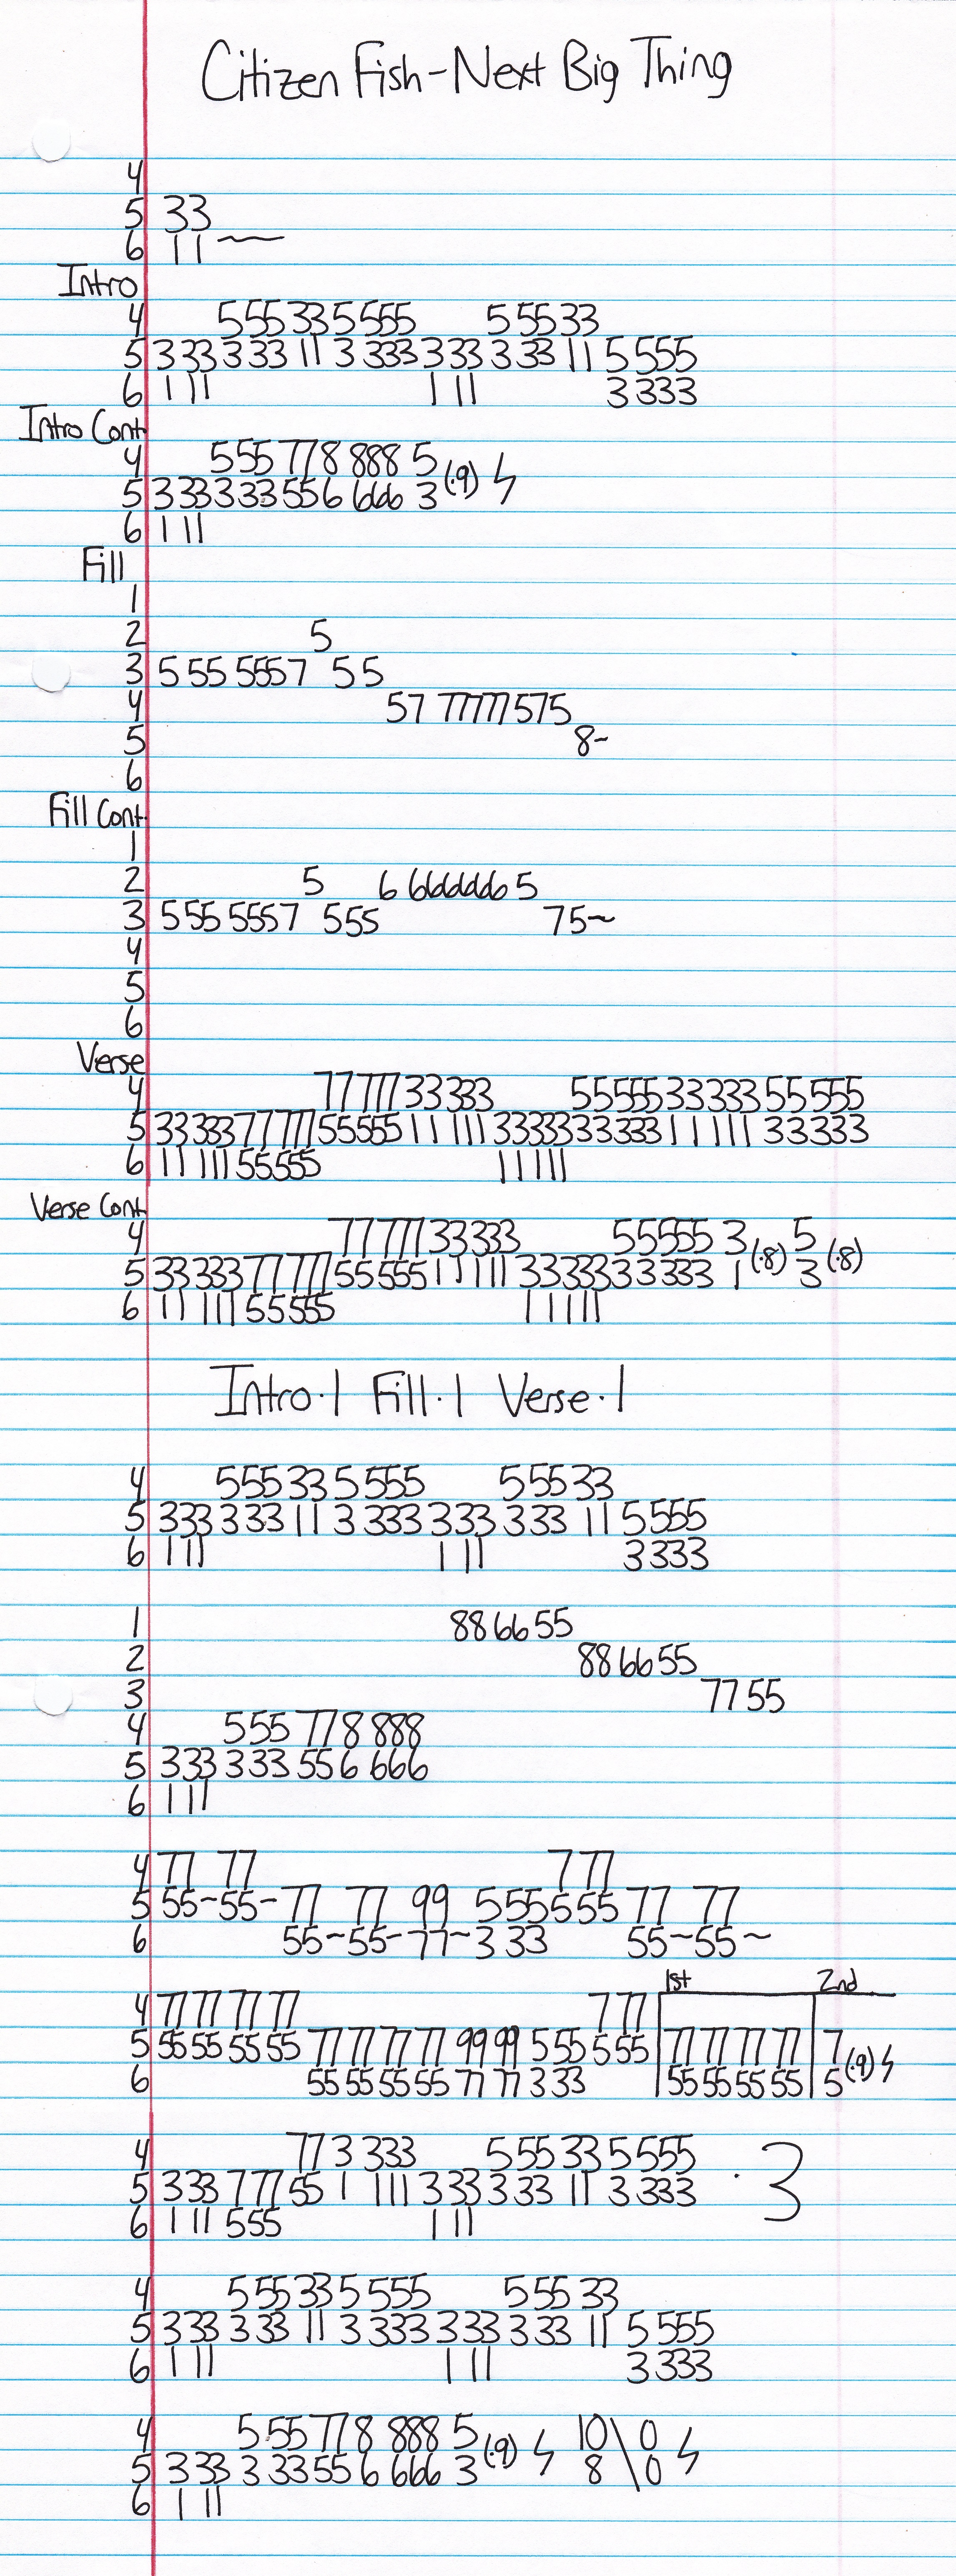 Citizen Fish-Next Big Thing
4
5 33
6 11 ~
Intro
4 555 33 5 555 5 55 33
5 3 33 3 33 11 3 333 3 33 3 33 11 5 555
6 1 11 1 11 3 333
Intro Cont.
4 555 77 8 888 5
5 3 33 3 33 55 6 666 3 (·9) ϟ
6 1 11
Fill
1
2 5
3 5 55 5557 55
4 57 77777 575
5 8~
6
Fill Cont.
1
2 5 6 6666666 5
3 555 5557 555 75~
4
5
6
Verse
4 77 777 33333 55555 33333 55555
5 33 333 77 777 55555 11 111 33333 33333 11 111 33333
6 11 111 55555 11111
Verse Cont.
4 77 777 33333 55555 3 5
5 33 333 77 777 55555 11 111 33333 33333 1 (·8) 3 (·8)
6 11 111 55555 11111
Intro·1 Fill·1 Verse·1
4 555 33 5 555 5 55 33
5 333 3 33 11 3 333 333 3 33 11 5 555
6 1 11 1 11 3 333
1 88 66 55
2 88 66 55
3 77 55
4 555 77 8 888
5 333 3 33 55 6 666
6 1 11
4 77 77 7 77
5 55~55- 77 77 99 5 55 5 55 77 77
6 55~55-77~3 33 55~55~
1st 2nd
4 77 77 77 77 7 77
5 55 55 55 55 77 77 77 77 99 99 5 55 5 55 77 77 77 77 7 (·9) ϟ
6 55 55 55 55 77 77 3 33 55 55 55 55 5
4 77 3 333 5 55 33 5 555
5 3 33 7 77 55 1 111 3 33 3 33 11 3 333 · 3
6 1 11 555 1 11
4 5 55 33 5 555 5 55 33
5 3 33 3 33 11 3 333 3 33 3 33 11 5 555
6 1 11 1 11 3 333
4 5 55 77 8 888 5 10 \ 0
5 3 33 3 33 55 6 666 3 (·9) ϟ 8 \ 0 ϟ
6 1 11